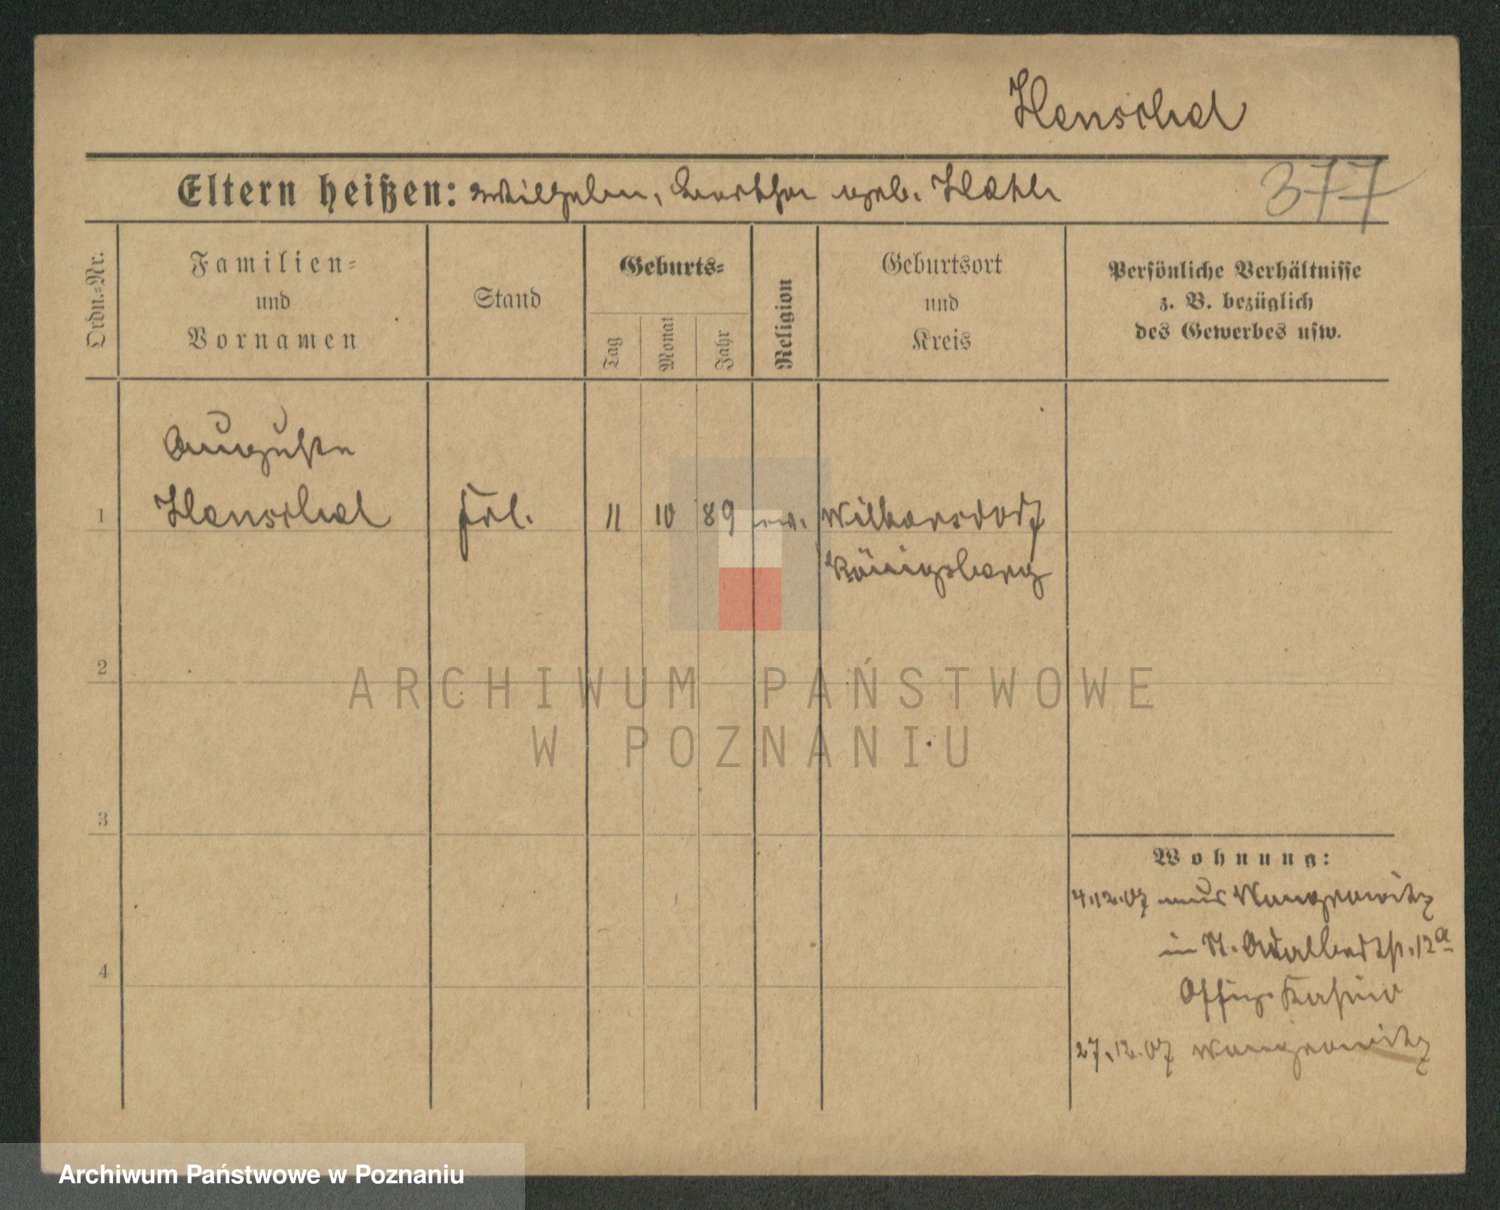 Henschel
377
Eltern heißen: Wilhelm, Berthe geb. Hehl
Ordn.-Nr.
Familien-
und
Vornamen
Stand
Geburts-
Tag
Monat
Jahr
Religion
Geburtsort
und
Kreis
Persönliche Verhältnisse
z. B. bezüglich
des Gewerbes usw.
Auguste
1 Henschel Frl. 11 10 89 ev. Wilkersdorf
Königsberg
2
ARCHIWUM PAŃSTWOWE
W POZNANIU
3
Wohnung:
4.12.07 aus Wongrowitz
in St. Adalbertstr. 12a
4
Offiz. Kasino
27.12.07 Wongrowitz
Archiwum Państwowe w Poznaniu